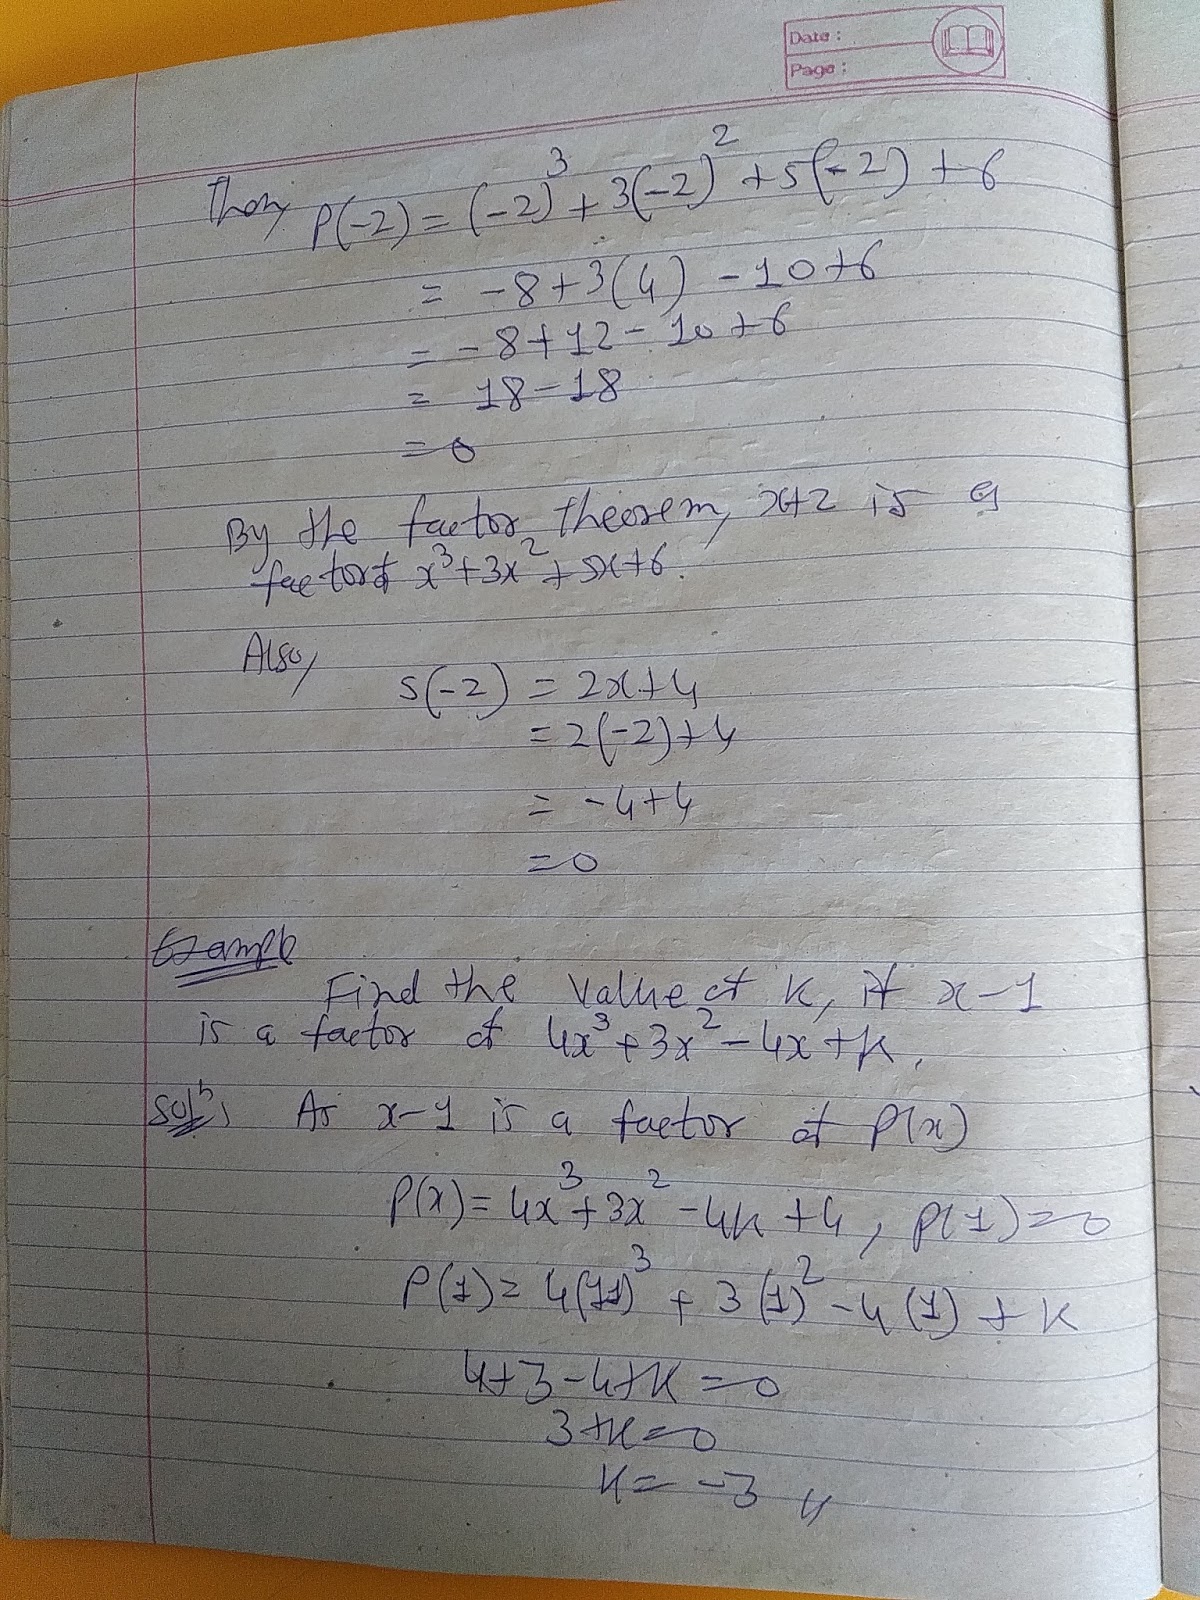 Date :
Page :
Then, P(-2) = (-2)³ + 3(-2)² + 5(-2) + 6
= -8 + 3(4) - 10 + 6
= -8 + 12 - 10 + 6
= 18 - 18
= 0
By the factor theorem, x+2 is a
factor of x³ + 3x² + 5x + 6.
Also,
s(-2) = 2x + 4
= 2(-2) + 4
= -4 + 4
= 0
Example
Find the value of K, if x-1
is a factor of 4x³ + 3x² - 4x + K.
Solⁿ: As x-1 is a factor of P(x)
P(x) = 4x³ + 3x² - 4k + 4, P(1) = 0
P(1) = 4(11)³ + 3(1)² - 4(1) + K
4 + 3 - 4 + K = 0
3 + K = 0
K = -3 //